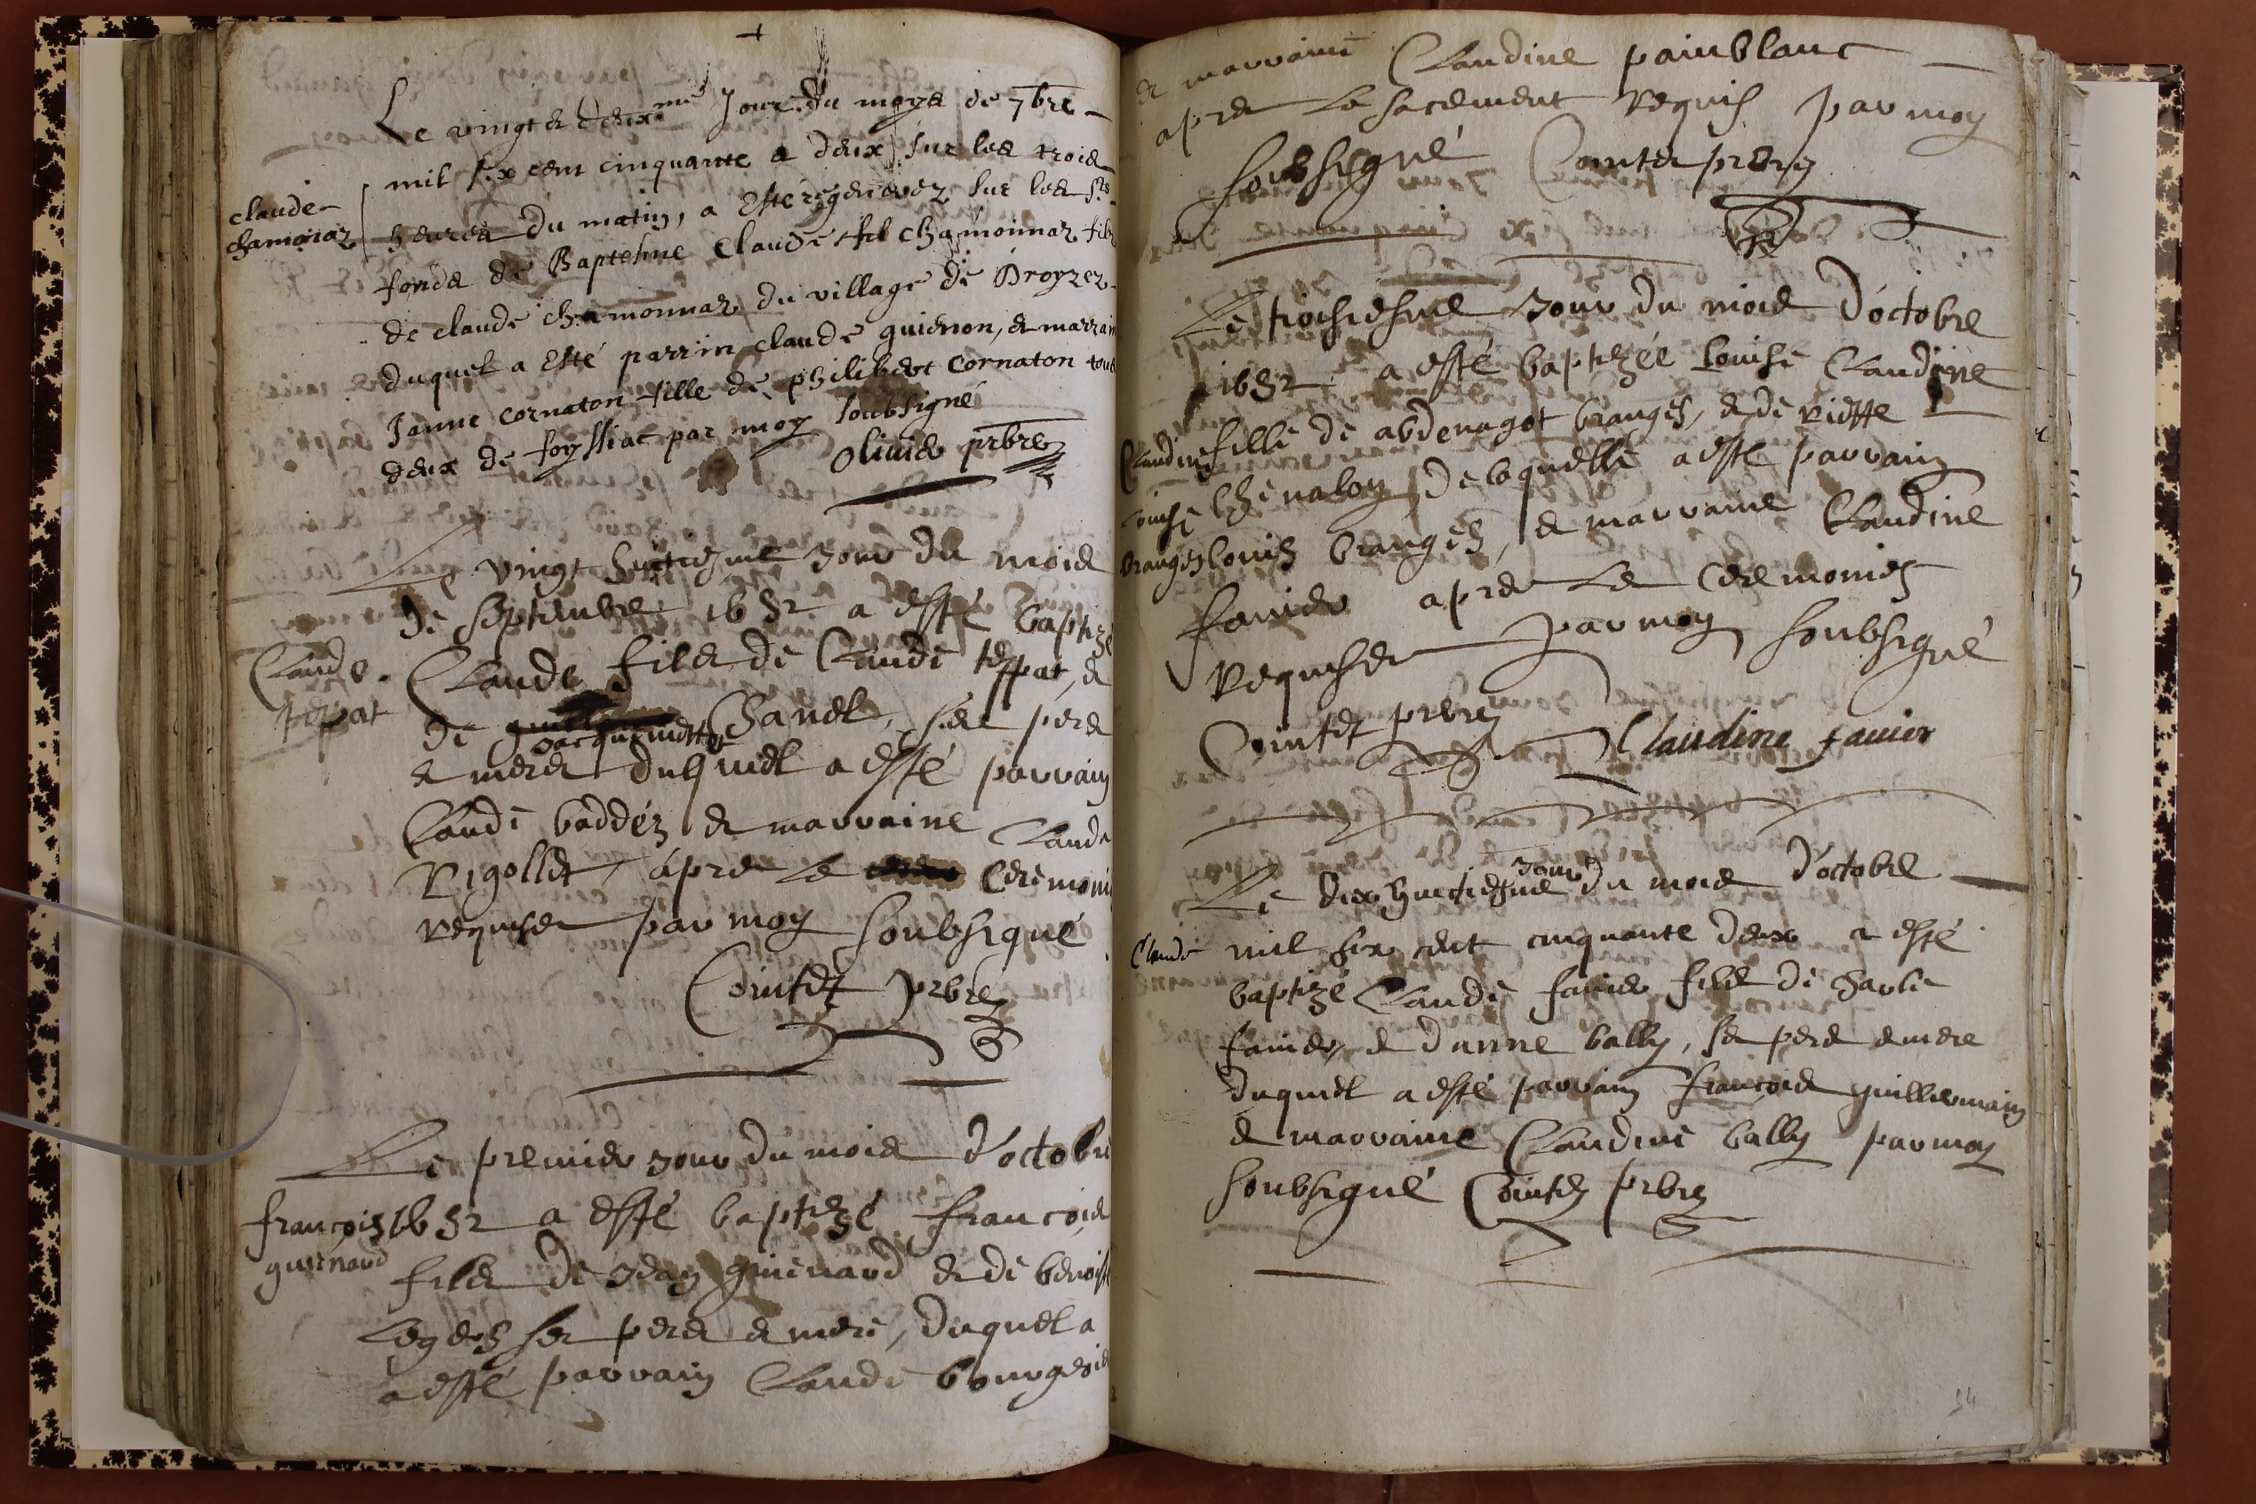 Le vingt et deuxme Jour du moys de 7bre
mil six cent cinquante et deux sur les trois
claude
chamonaz
heures du matin, a esté régénérez sur les Sts
fonds de Baptesme Claude fil chamonnaz filz
de claude chamonnaz du village de Broyzez
duquel a esté parrin claude guienon, et marrain
Janne cornaton fille de philibert Cornaton tous
deux de foyssiat par moy soubsigné
Olivier prbre
Le vingt huictiesme jour du mois
de septembre 1652 a esté baptizé
Claude
tespat
Claude fils de Claude tespat, et
de Jacquemette Chanel, ses pere
et mere duquel a esté parrain
Claude baddéz et marraine Claude
Rigollet, apres le ceremonie
requise par moy soubsigné
Cointet prbre
Le premier jour du mois d'octobre
françois
guienard
1652 a esté baptizé françois
fils de Jean guienard et de benoiste
Legers ses pere et mere, duquel a
a esté parrain Claude bourgeois
et marraine Claudine painblanc
apres le sacrement requis par moy
soubsigné Cointet prbre
Le troisiesme jour du mois d'octobre
1652 a esté baptizée Louise Claudine
Claudine
Louise
branges
fille de abdenagot branges, et de pierre
Chevalon, De laquelle a esté parrain
Louis branges, et marraine Claudine
favier apres le ceremonies
requises par moy soubsigné
Cointet prbre
Claudine favier
Le dix huictiesme jour du mois d'octobre
Claude
mil six cent cinquante deux a esté
baptizé Claude favier fils de charle
favier, et d'anne bally, se pere et mere
duquel a esté parrain françois guillermain
et marraine Claudine bally par moy
soubsigné Cointet prbre
54